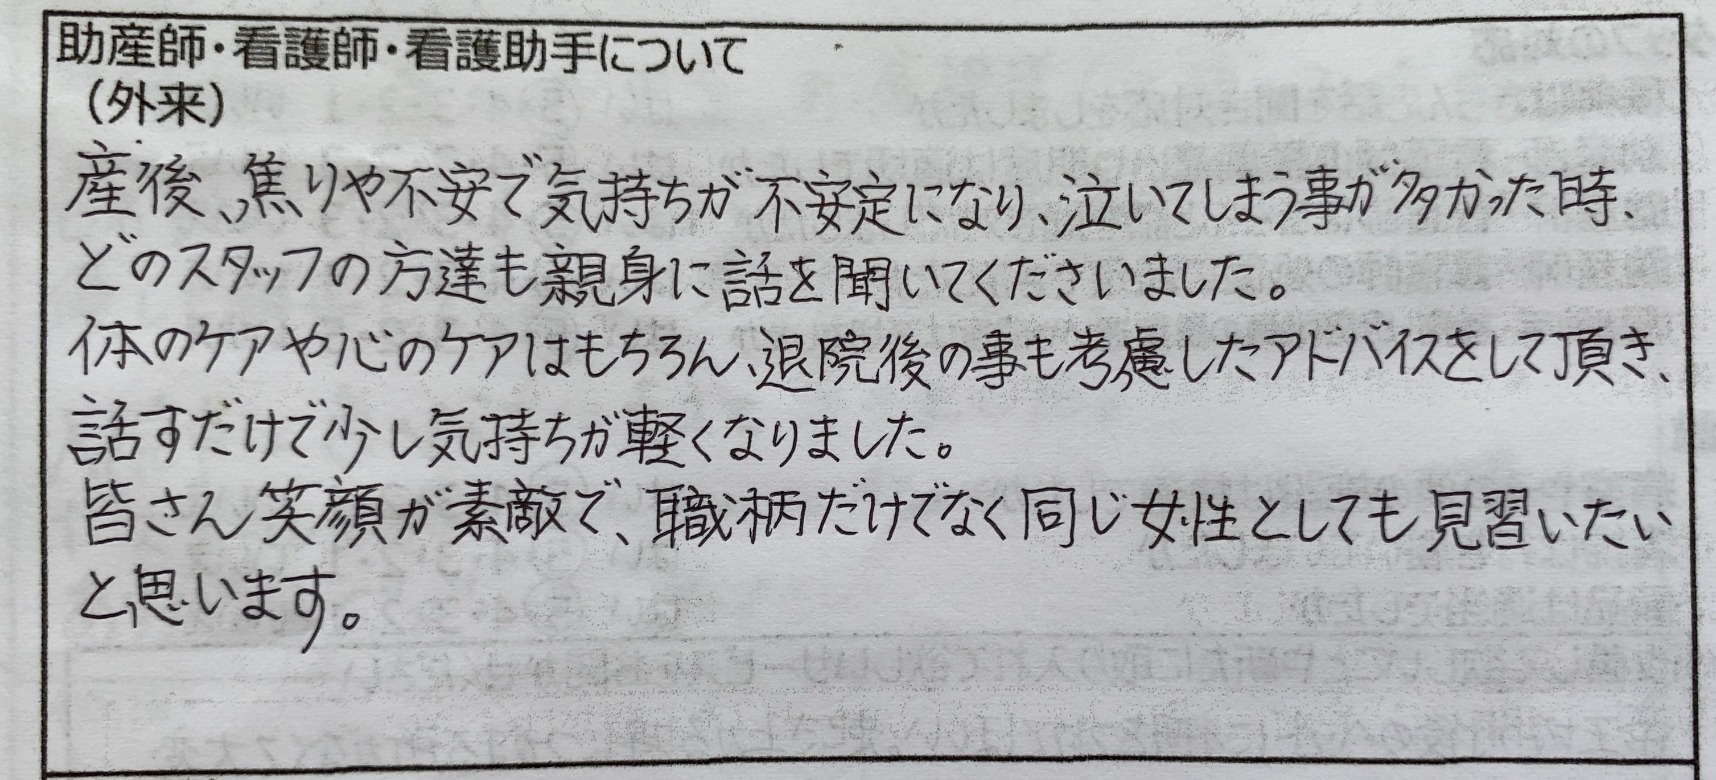 助産師・看護師・看護助手について
（外来）
産後、焦りや不安で気持ちが不安定になり、泣いてしまう事が多かった時、
どのスタッフの方達も親身に話を聞いてくださいました。
体のケアや心のケアはもちろん、退院後の事も考慮したアドバイスをして頂き、
話すだけで少し気持ちが軽くなりました。
皆さん笑顔が素敵で、職柄だけでなく同じ女性としても見習いたい
と思います。